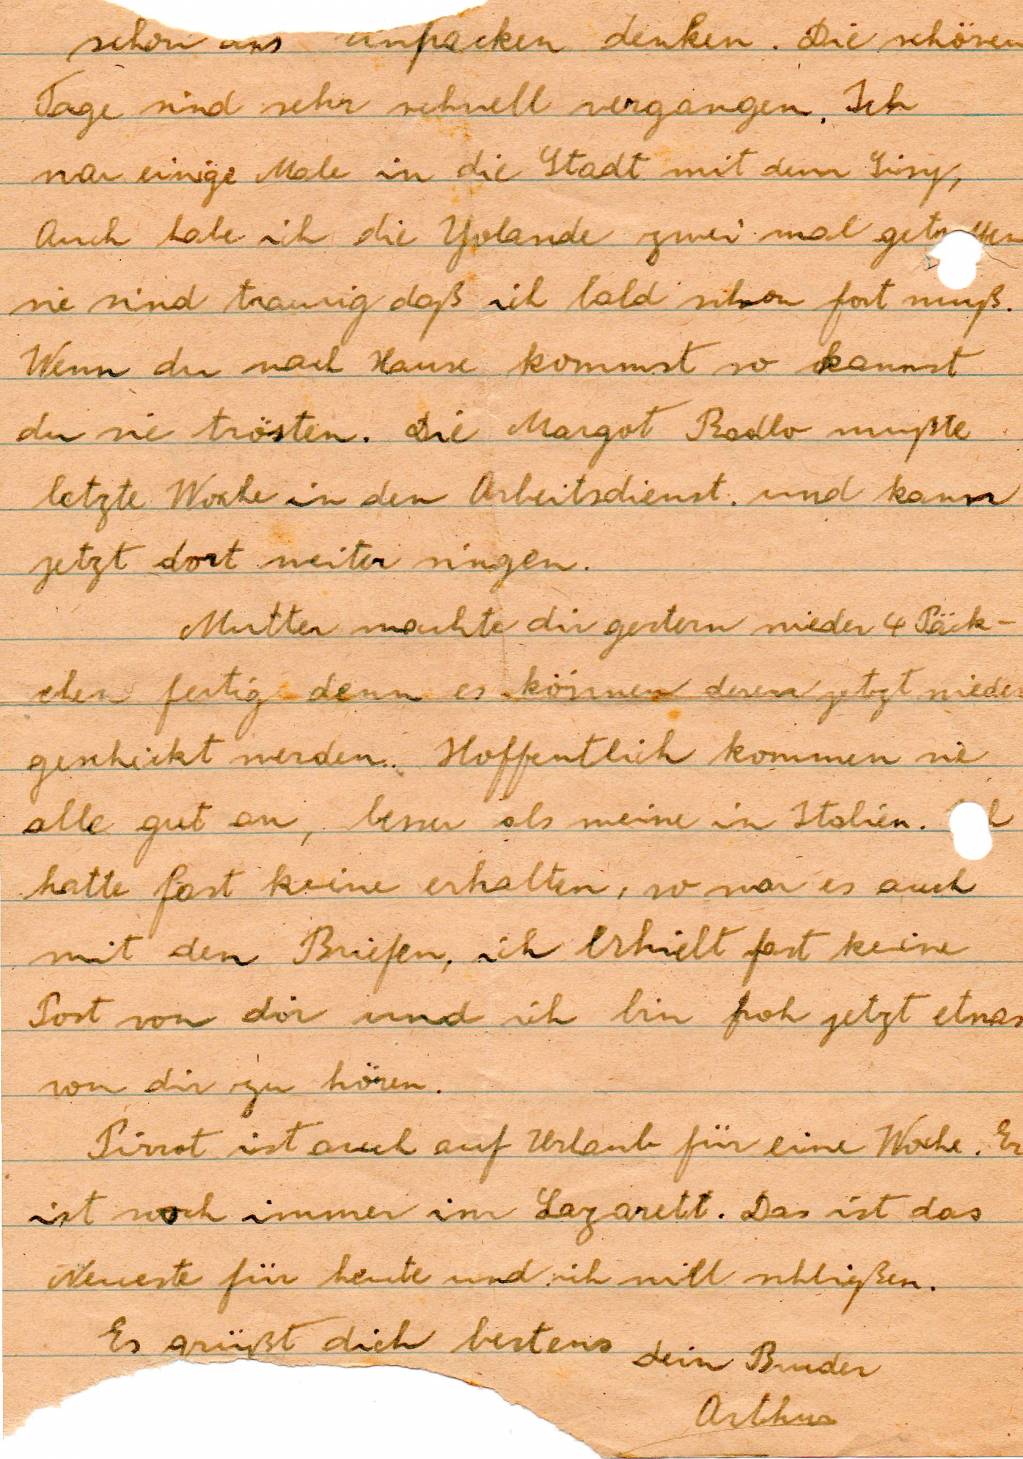 schon ans einpacken denken. Die schönen
Tage sind sehr schnell vergangen. Ich
war einige Male in die Stadt mit dem
Auch habe ich die Yolande zwei mal getroffen
sie sind traurig daß ich bald schon fort muß.
Wenn du nach Hause kommst so kannst
du sie trösten. Die Margot Radlo mußte
letzte Woche in den Arbeitsdienst. und kann
jetzt dort weiter singen.
Mutter machte dir gestern wieder 4 Päck-
chen fertig denn es können deren jetzt wieder
geschickt werden. Hoffentlich kommen sie
alle gut an, besser als meine in Italien. Ich
hatte fast keine erhalten, so war es auch
mit den Briefen, ich erhielt fast keine
Post von dir und ich bin froh jetzt etwas
von dir zu hören.
Pirrot ist auch auf Urlaub für eine Woche. Er
ist noch immer im Lazarett. Das ist das
Neueste für heute und ich will schließen.
Es grüßt dich bestens dein Bruder
Arthur